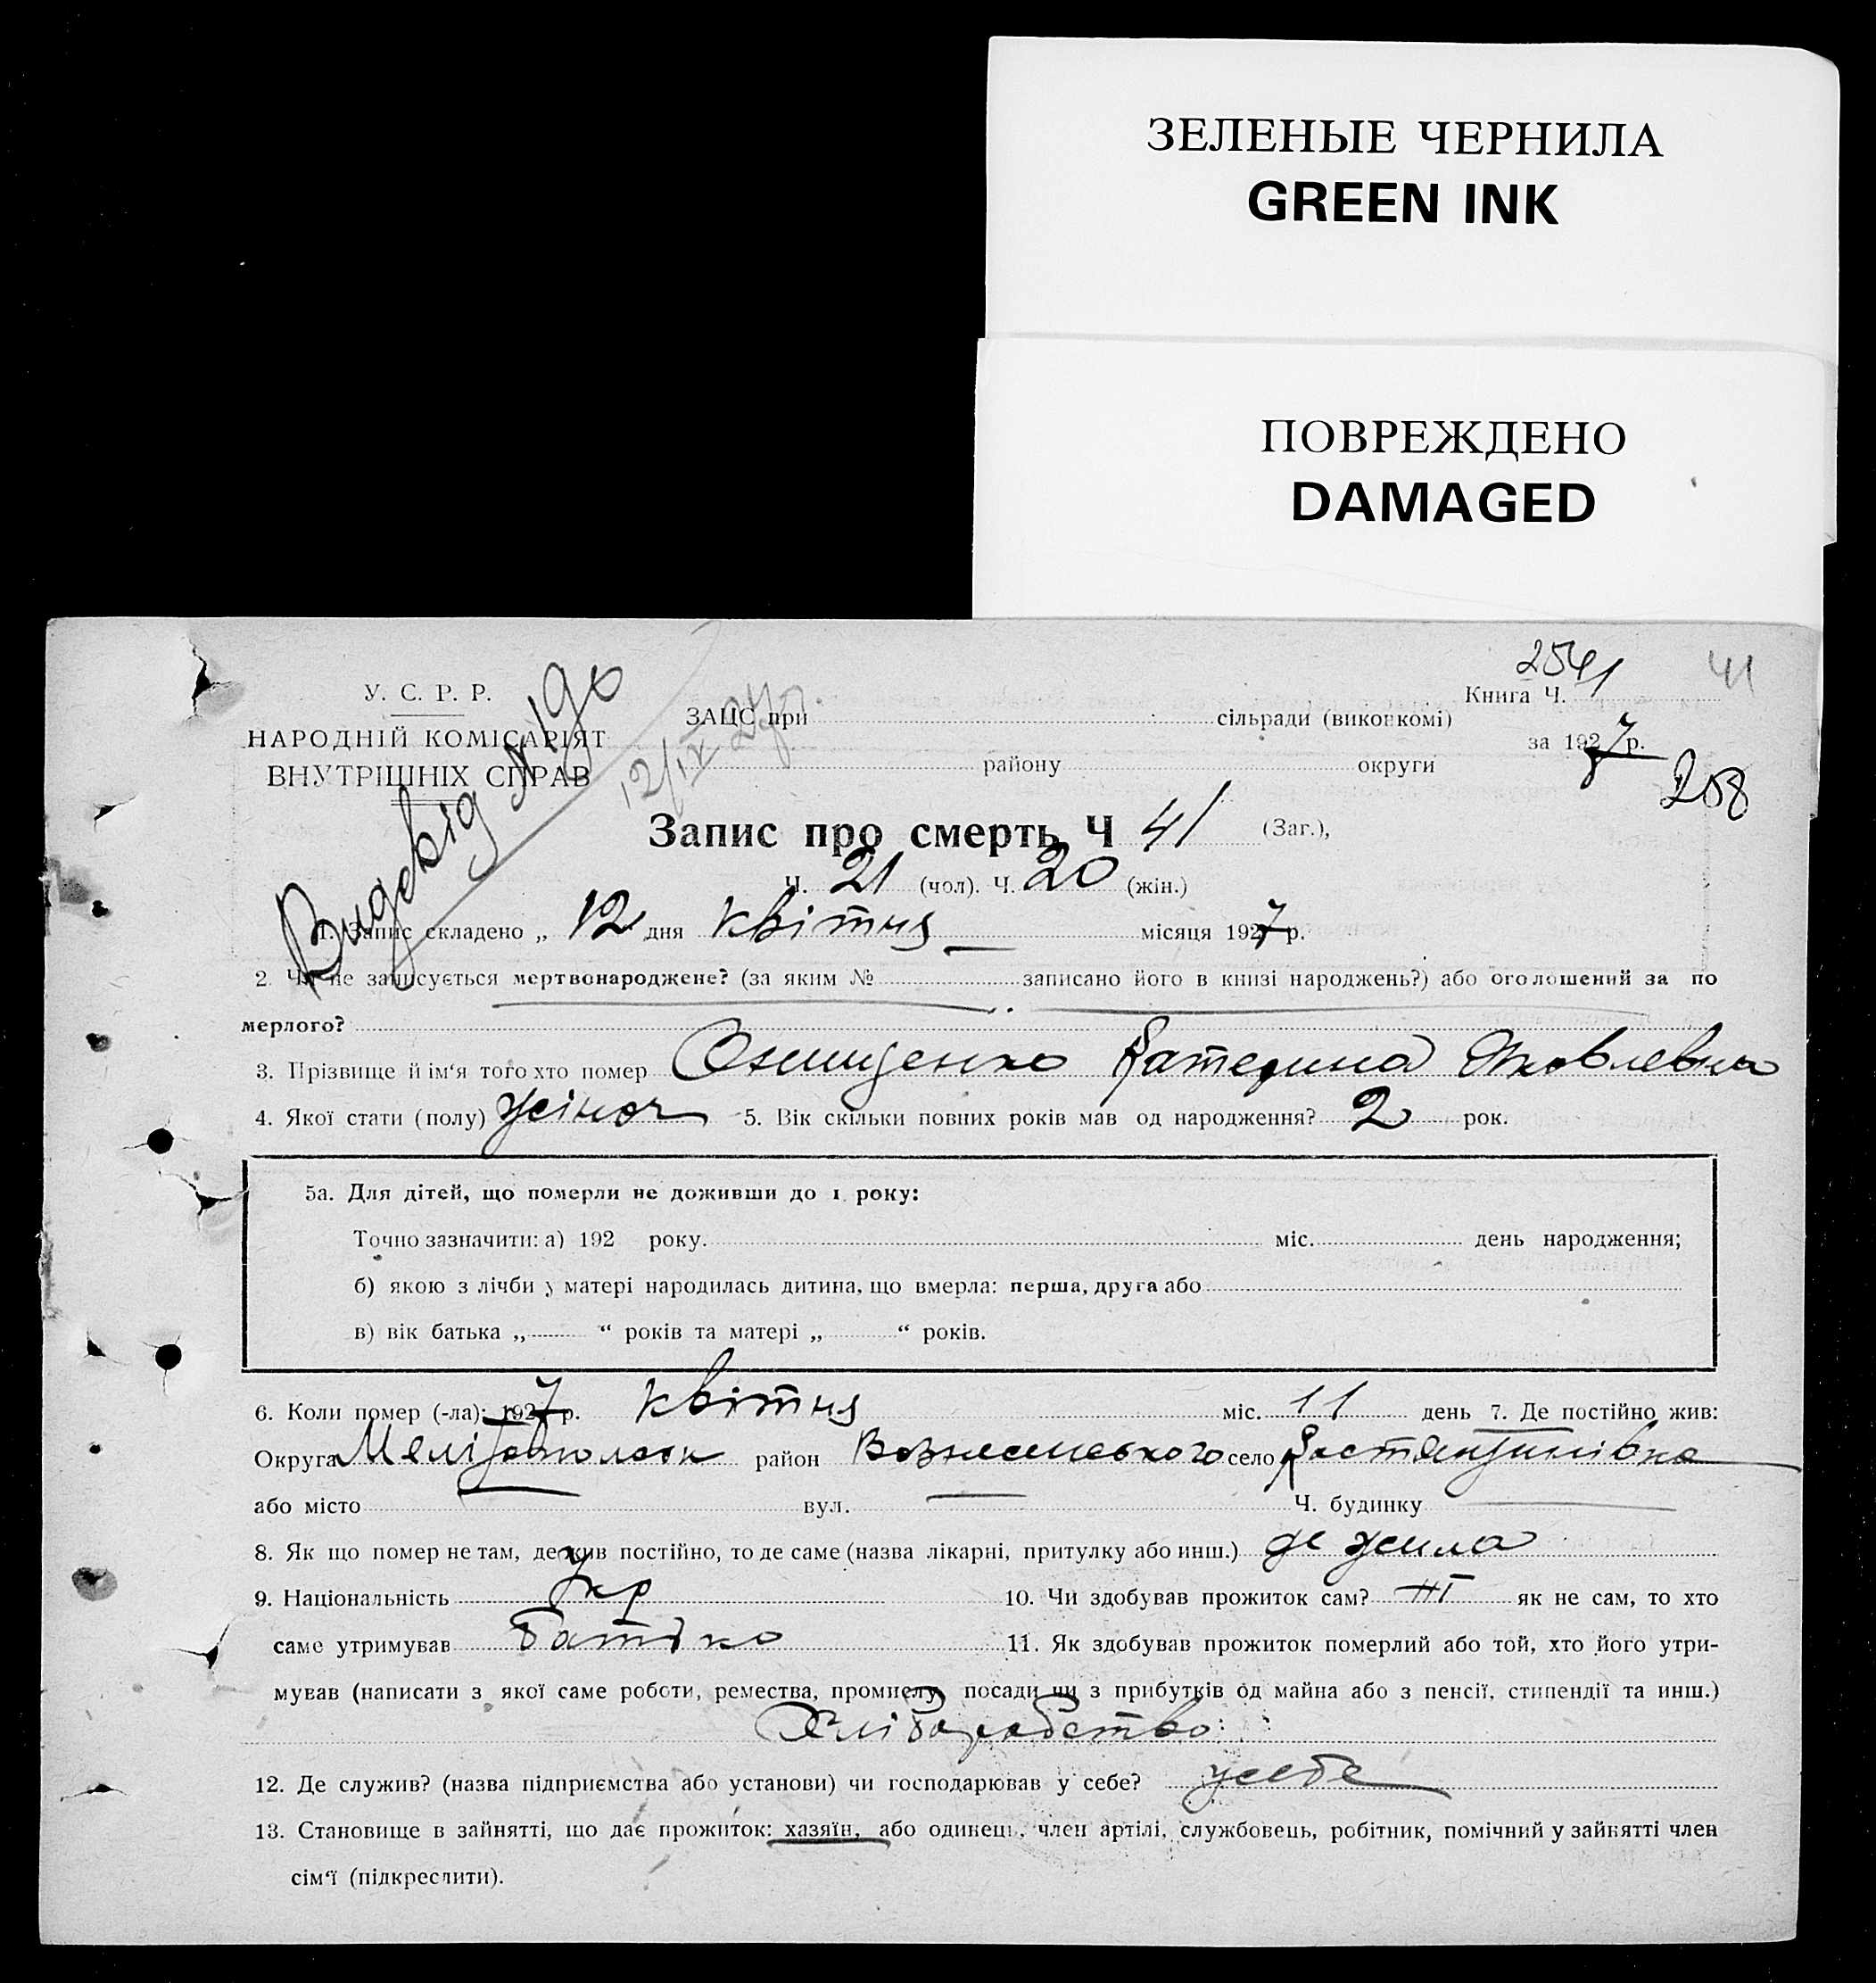 ЗЕЛЕНЫЕ ЧЕРНИЛА
GREEN INK
ПОВРЕЖДЕНО
DAMAGED
2541
41
У. С. Р. Р.
Книга Ч.
НАРОДНІЙ КОМІСАРІЯТ
ВНУТРІШНІХ СПРАВ
ЗАЦС при сільради (виконкомі)
за 1927 р.
району округи
208
N 190
12/IV 27 р.
Запис про смерть Ч 41 (Заг.),
Ч. 21 (чол). Ч. 20 (жін.)
1. Запис складено „ 12 дня квітня місяця 1927 р.
2. Чи не записується мертвонароджене? (за яким № записано його в книзі народжень?) або оголошений за по
мерлого?
3. Прізвище й ім‘я того хто помер Онищенко Катерина Яковлевна
4. Якої стати (полу) жіноч 5. Вік скільки повних років мав од народження? 2 рок.
5а. Для дітей, що померли не доживши до 1 року:
Точно зазначити: а) 192 року. міс. день народження;
б) якою з лічби у матері народилась дитина, що вмерла: перша, друга або
в) вік батька „ “ років та матері „ “ років.
6. Коли помер (-ла): 1927 р. квітня міс. 11 день 7. Де постійно жив:
Округа Мелітопольск район Вознесенського село Костянтинівка
або місто вул. Ч. будинку
8. Як що помер не там, де жив постійно, то де саме (назва лікарні, притулку або инш.) де жила
9. Національність Укр 10. Чи здобував прожиток сам? ні як не сам, то хто
саме утримував батько 11. Як здобував прожиток померлий або той, хто його утри-
мував (написати з якої саме роботи, ремества, промислу, посади чи з прибутків од майна або з пенсії, стипендії та инш.)
Хліборобство
12. Де служив? (назва підприємства або установи) чи господарював у себе? у себе
13. Становище в зайнятті, що дає прожиток: хазяїн, або одинець, член артілі, службовець, робітник, помічний у зайнятті член
сім‘ї (підкреслити).